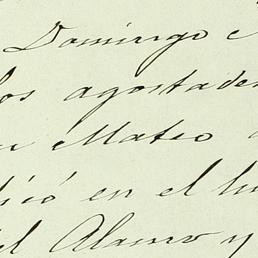 Domingo
los agostade
Mateo
dicó en el lu
el Alamo y